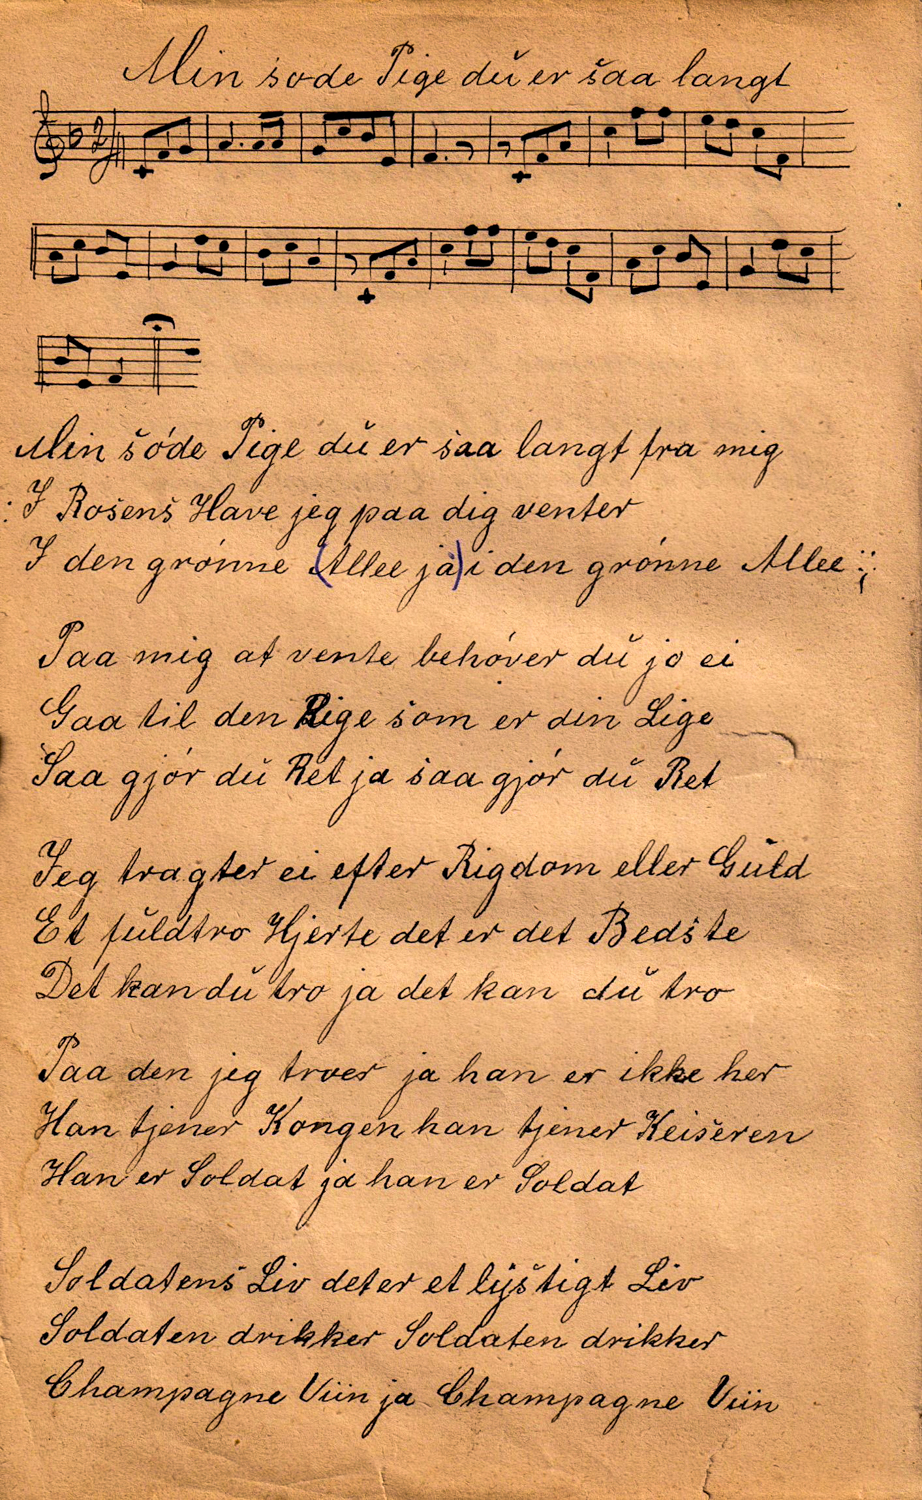 Min søde Pige du er saa langt
Min søde Pige du er saa langt fra mig
: I Rosens Have jeg paa dig venter
I den grønne (Allee ja) i den grønne Allee :;
Paa mig at vente behøver du jo ei
Gaa til den Rige som er din Lige
Saa gjør du Ret ja saa gjør du Ret
Jeg tragter ei efter Rigdom eller Guld
Et fuldtro Hjerte det er det Bedste
Det kan du tro ja det kan du tro
Paa den jeg troer ja han er ikke her
Han tjener Kongen han tjener Keiseren
Han er Soldat ja han er Soldat
Soldatens Liv det er et lystigt Liv
Soldaten drikker Soldaten drikker
Champagne Viin ja Champagne Viin